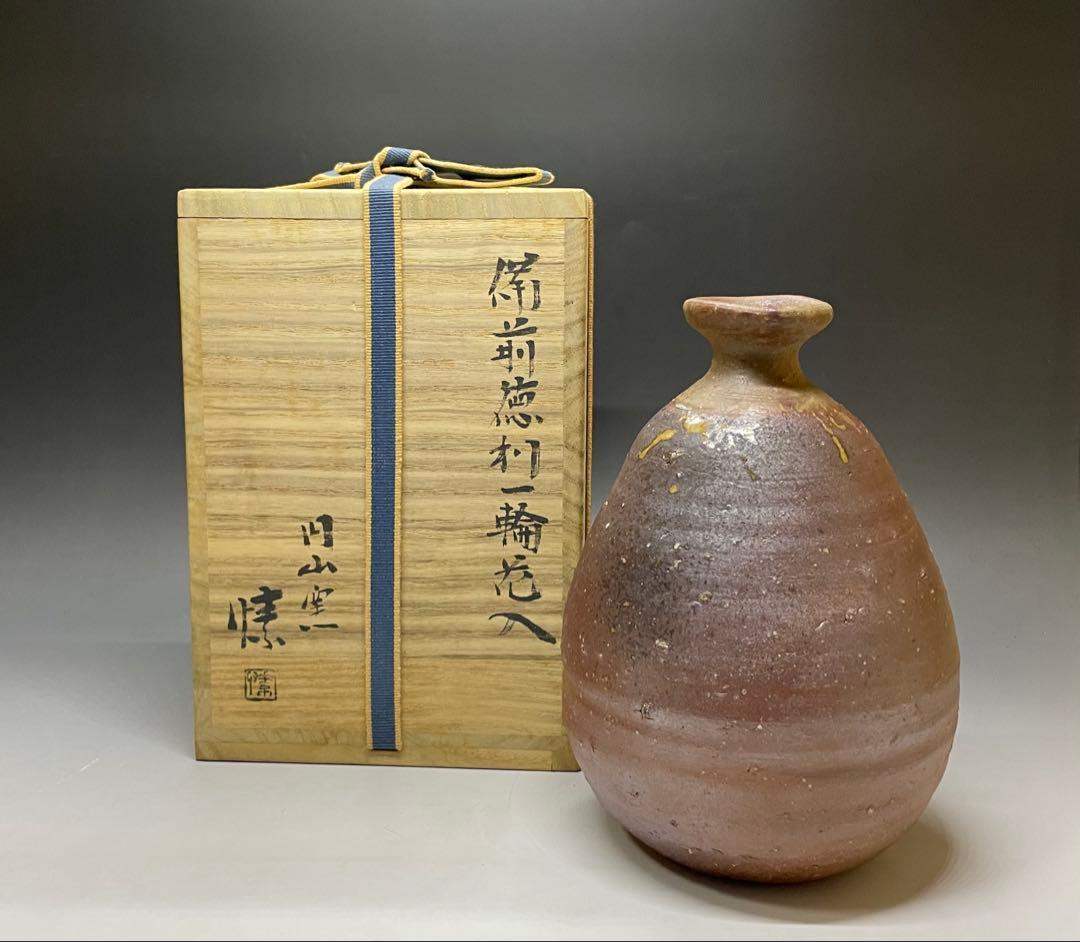 備前徳利一輪花入
円山窯
愫